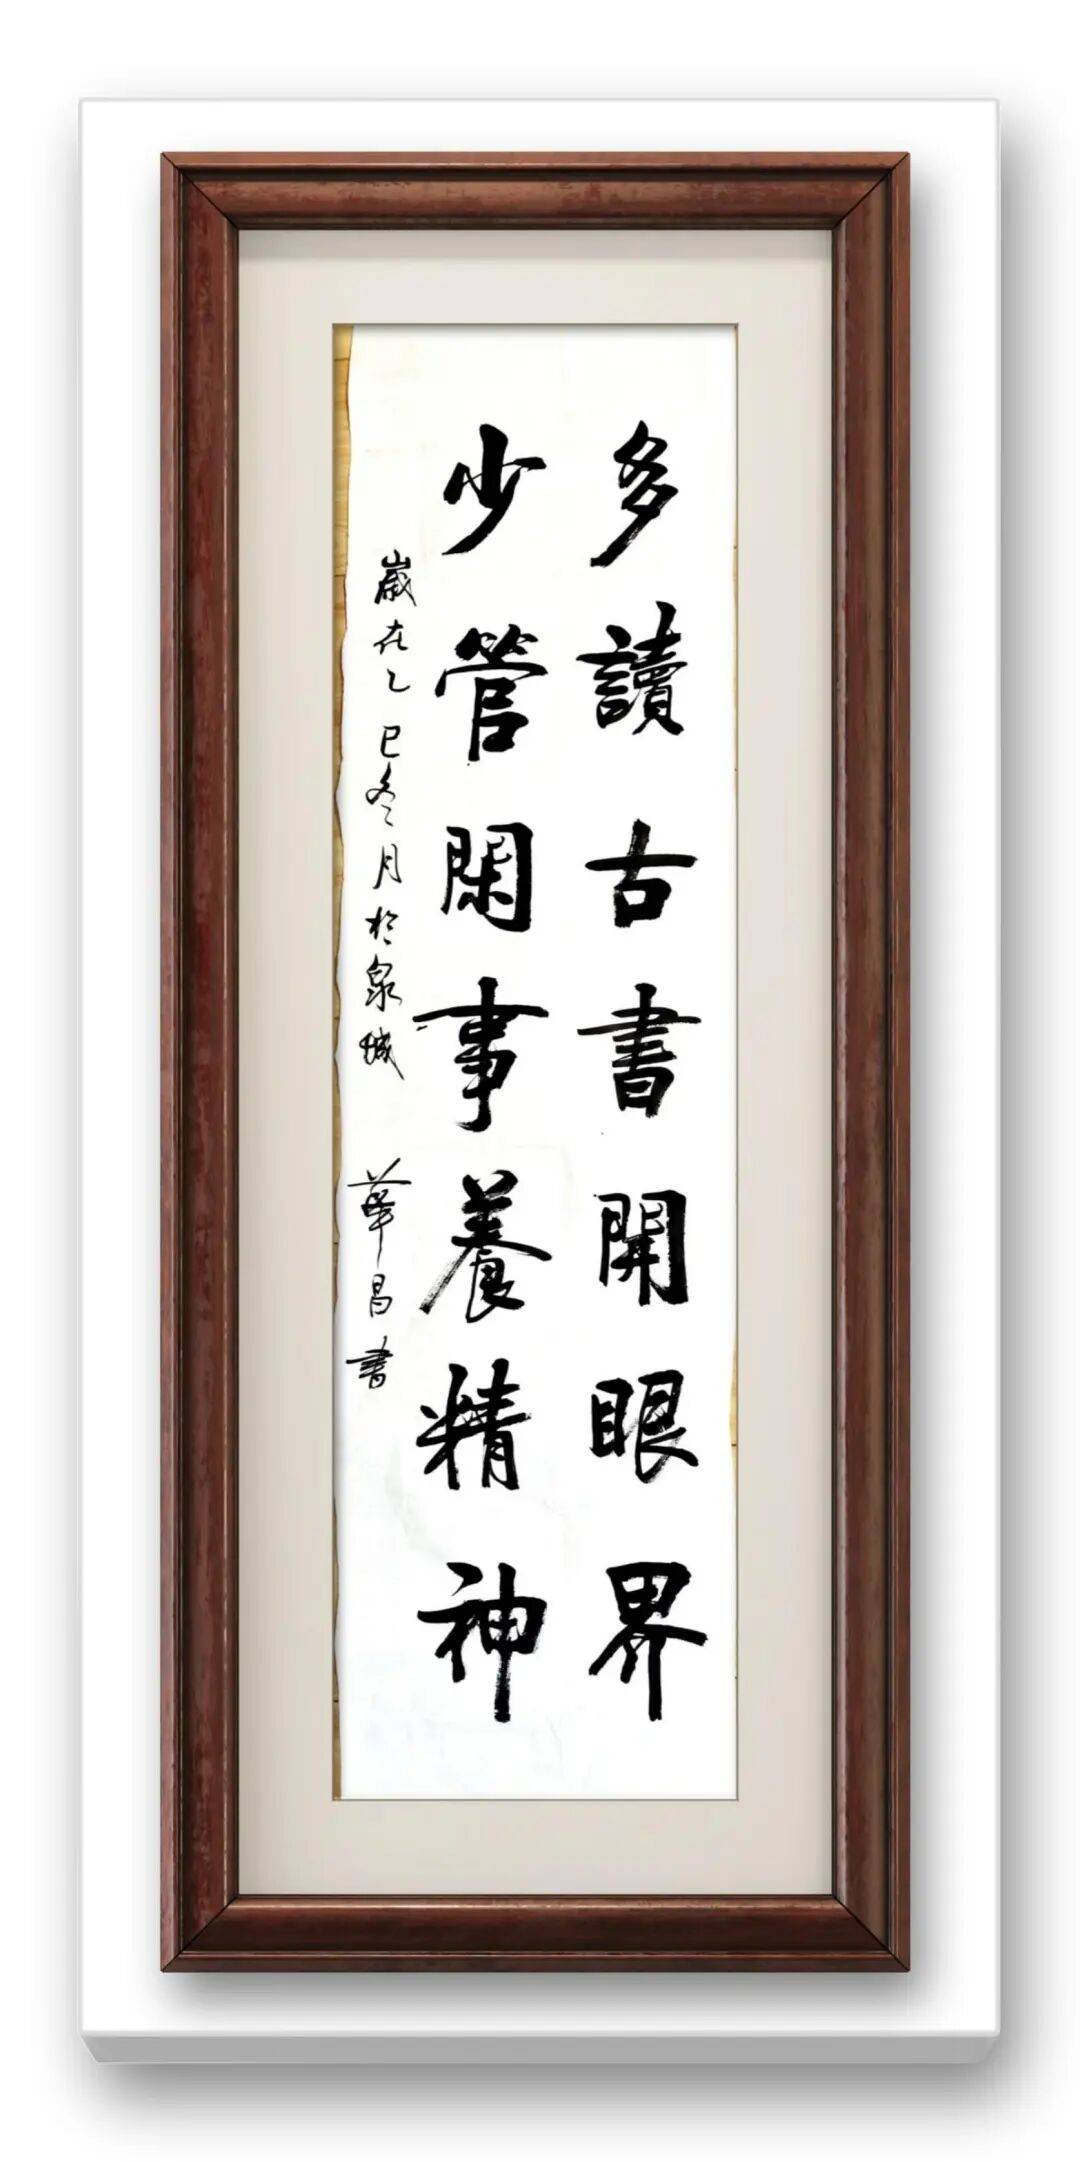 多讀古書開眼界
少管閑事養精神
歲在乙巳冬月於泉城
華昌書